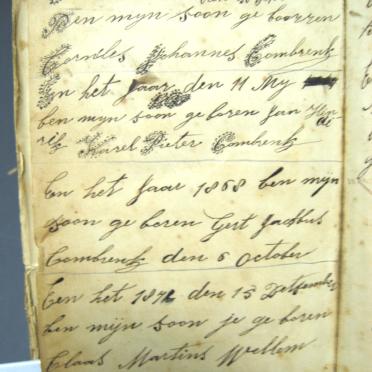 Den mijn soon ge boorren
Corniles Johannes Combrenk
En het Jaar den 11 My
ben mijn soon ge boren Jan Hen
rik Karel Pieter Combrenk
En het Jaar 1868 ben mijn
soon ge boren Gert Jacobus
Combrenk den 6 October
Een het 1871 den 15 Detsember
ben mijn soon je ge boren
Claas Martins Wellem